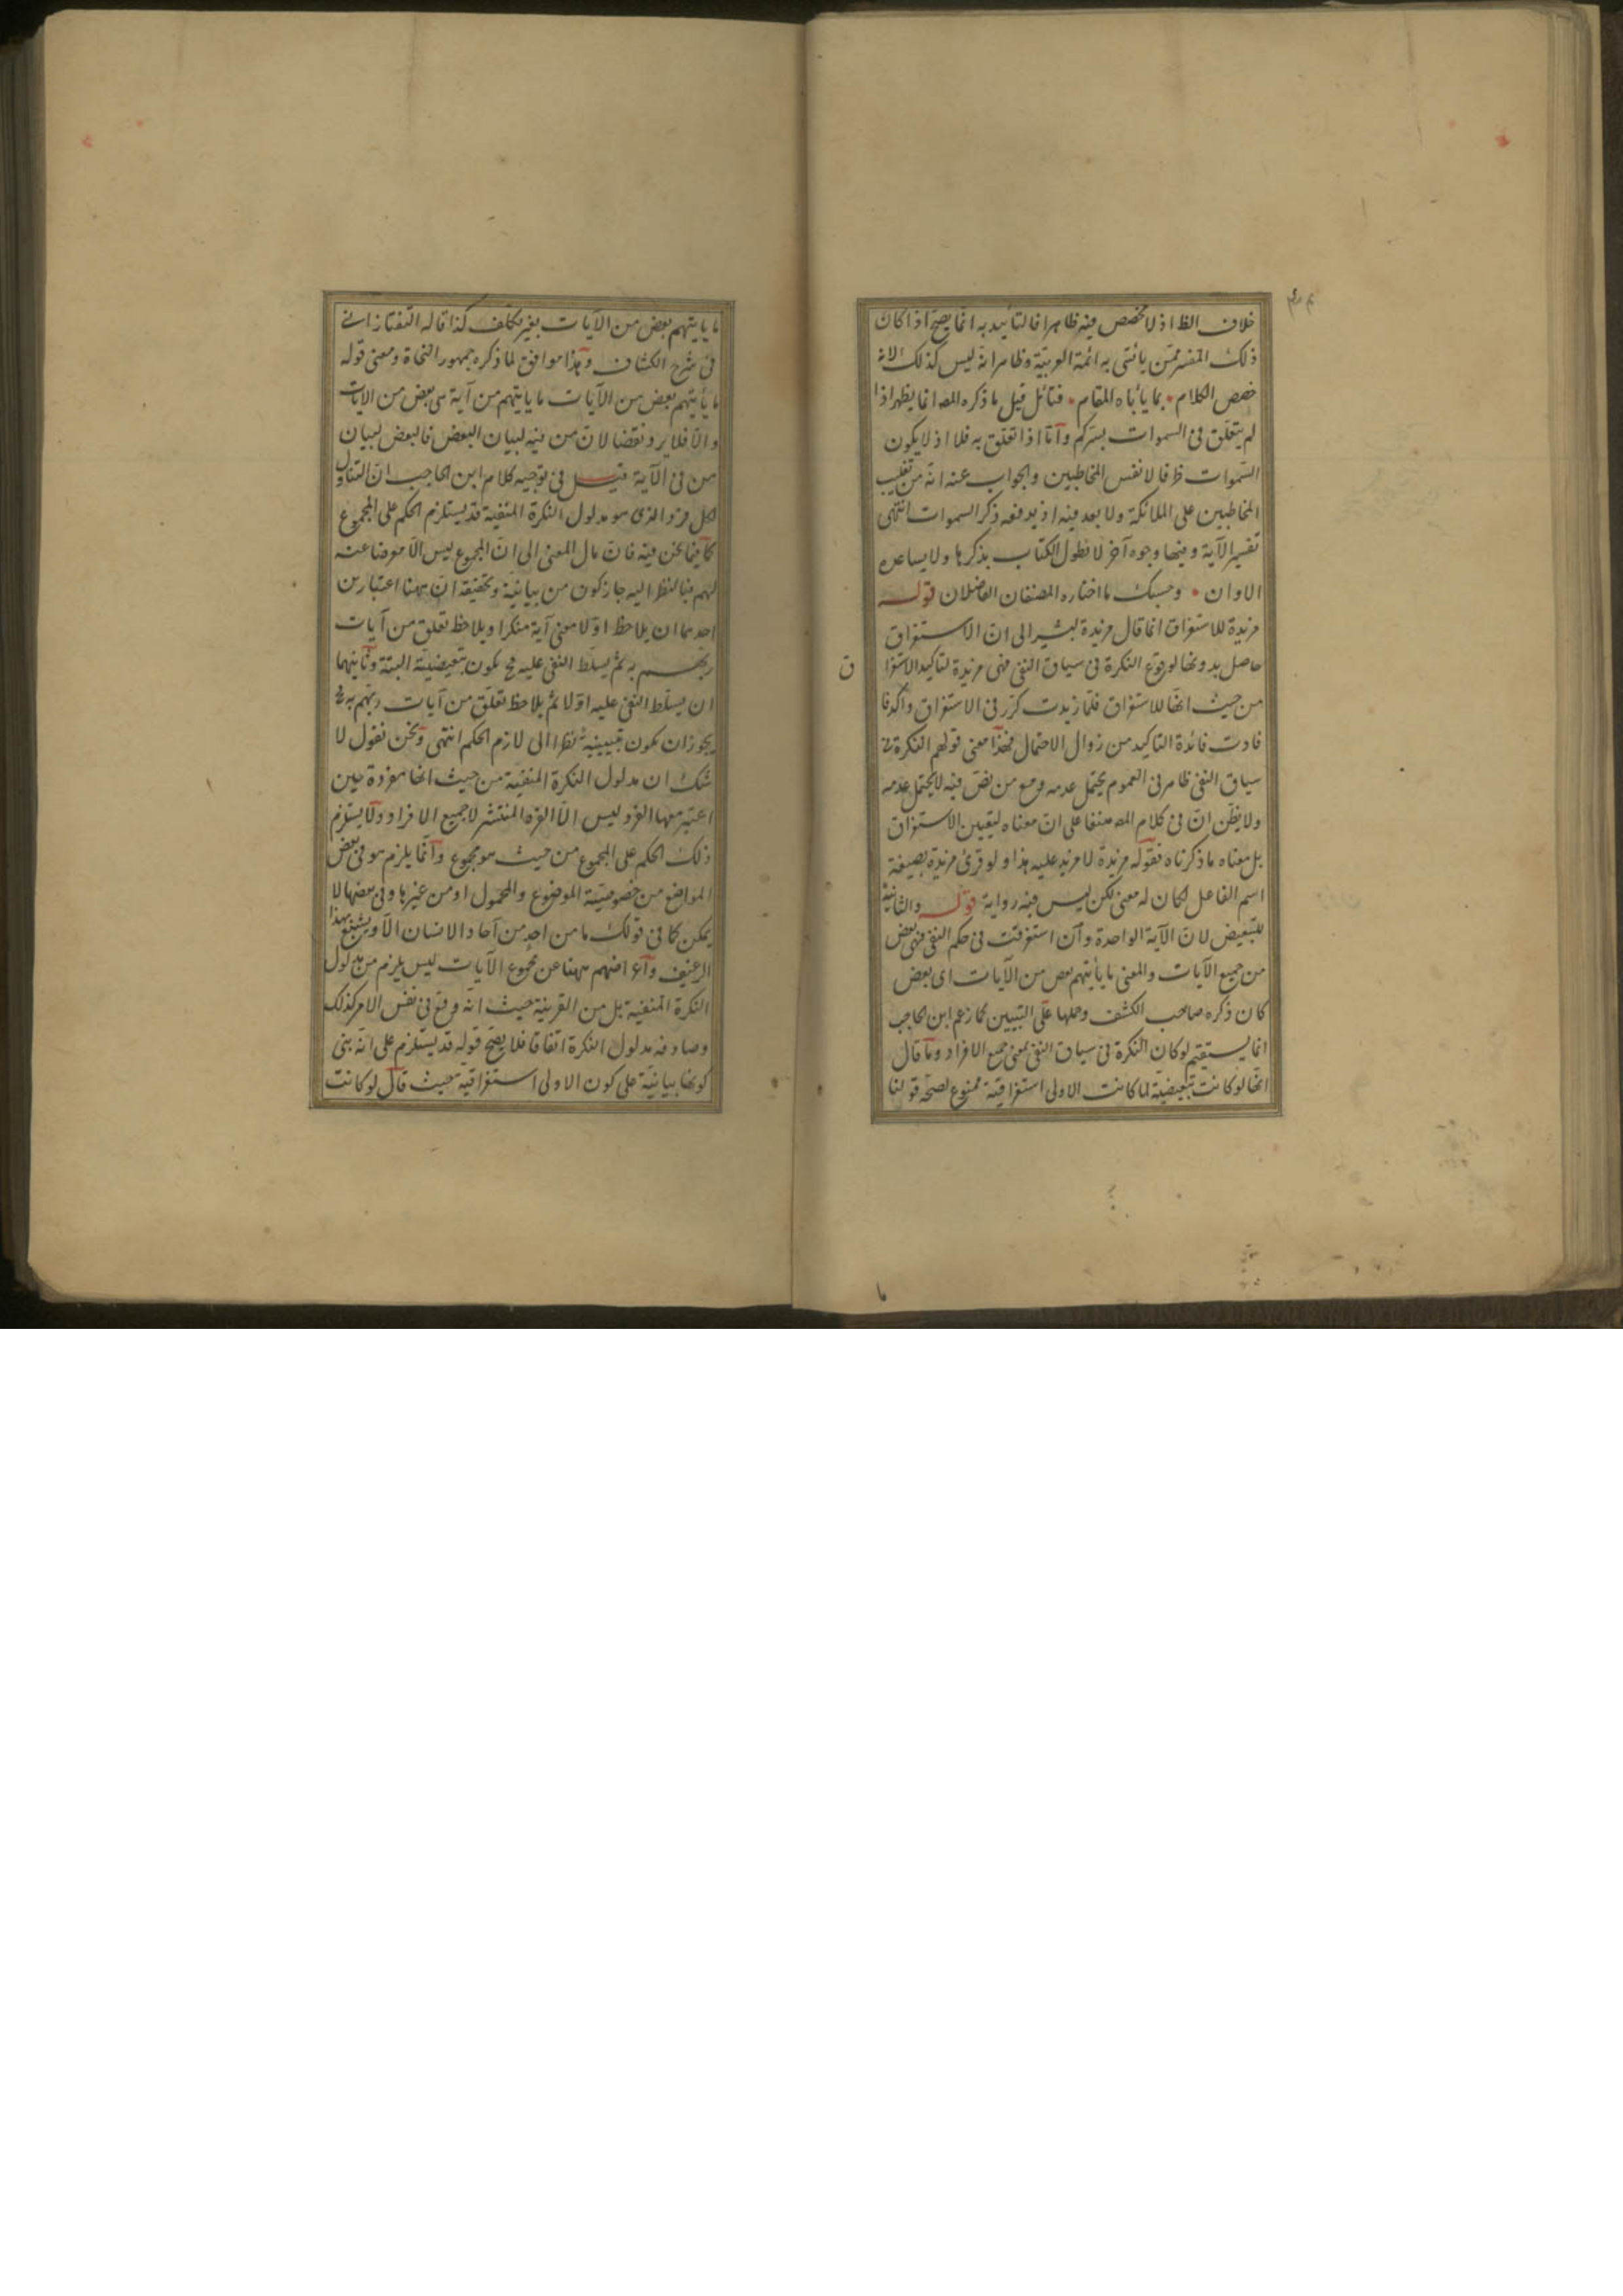 خلاف الظ اذ لا مخصص فيه ظاهرا فالتأييد به انما يصح اذا كان
ذلك المفسر ممن يأتى به ائمة العربية وظاهر انه ليس كذلك الا انه
خصص الكلام بما يأباه المقام فتأمل قيل ما ذكره المص انما يظهر اذا
لم يتعلق فى السموات بسركم وأما اذا تعلق به فلا اذ لا يكون
السموات ظرفا لانفس المخاطبين والجواب عنه انه من تغليب
المخاطبين على الملائكة ولا بعد فيه اذ يدفعه ذكر السموات انتهى
تفسير الآية وفيها وجوه آخر لا نطول الكتاب بذكرها ولا يساعده
الاوان وحسبك ما اختاره المصنفان الفاضلان قوله
مزيدة للاستغراق انما قال مزيدة ليشير الى ان الاستغراق
حاصل بدونها لوقوع النكرة فى سياق النفى فهى مزيدة لتأكيد الاستغرا
ق
من حيث انها للاستغراق فلما زيدت كرر فى الاستغراق وأكد فا
فادت فائدة التأكيد من زوال الاحتمال فهذا معنى قولهم النكرة فى
سياق النفى ظاهر فى العموم يحتمل عدمه ومع من نص فيه لا يحتمل عدمه
ولا يظن ان فى كلام المص على ان معناه ليتعين الاستغراق
بل معناه ما ذكرناه فقوله مزيدة لا مزيد عليه هذا ولو قرئ مزيدة بصيغة
اسم الفاعل لكان له معنى لكن ليس فيه رواية قوله والثانية
للتبعيض لان الآية الواحدة وان استغرقت فى حكم النفى فهى بعض
من جميع الآيات والمعنى ما يأتيهم بعض من الآيات اى بعض
كان ذكره صاحب الكشف وحملها على التبيين كما زعم ابن الحاجب
انما يستقيم لو كان النكرة فى سياق النفى بمعنى جميع الافراد وما قال
انها لو كانت تبعيضية لما كانت الاولى استغراقية ممنوع لصحة قولنا
ما
ما يأتيهم بعض من الآيات بغير تكلف كذا قاله التفتازانى
فى شرح الكشاف وهذا موافق لما ذكره جمهور النحاة ومعنى قوله
ما يأتيهم بعض من الآيات ما يأتيهم من آية هى بعض من الايات
والا فلا يرد نقضا لان من فيه لبيان البعض فالبعض لبيان
من فى الآية قيل فى توجيه كلام ابن الحاجب ان التناول
لكل فرد الذى هو مدلول النكرة المنفية قد يستلزم الحكم على المجموع
كما فيما نحن فيه فان مال المعنى الى ان المجموع ليس الا معرضا عنه
لهم فبالنظر اليه جاز كون من بيانية وتحقيقه ان ههنا اعتبارين
احدهما ان يلاحظ اولا معنى آية منكرا ويلاحظ تعلق من آيات
ربهم به ثم يسلط النفى عليه فح يكون تبعيضية البتة وثانيهما
ان يسلط النفى عليه اولا ثم يلاحظ تعلق من آيات ربهم به فح
يجوز ان تكون تبيينية نظرا الى لازم الحكم انتهى ونحن نقول لا
شك ان مدلول النكرة المنفية من حيث انها مفردة حين
اعتبر معها الفرد ليس الا الفرد المنتشر لا جميع الافراد ولا يستلزم
ذلك الحكم على المجموع من حيث هو مجموع وانما يلزم هو فى بعض
المواضع من خصوصية الموضوع والمحمول او من غيرها وفى بعضها لا
يمكن كما فى قولك ما من احد من آحاد الانسان الا ويشبع بهذا
الرغيف واعراضهم ههنا عن مجموع الآيات ليس يلزم من مدلول
النكرة المنفية بل من القرينة حيث انه وقع فى نفس الامر كذلك
وصادفه مدلول النكرة اتفاقا فلا يصح قوله قد يستلزم على انه بنى
كونها بيانية على كون الاولى استغراقية حيث قال لو كانت